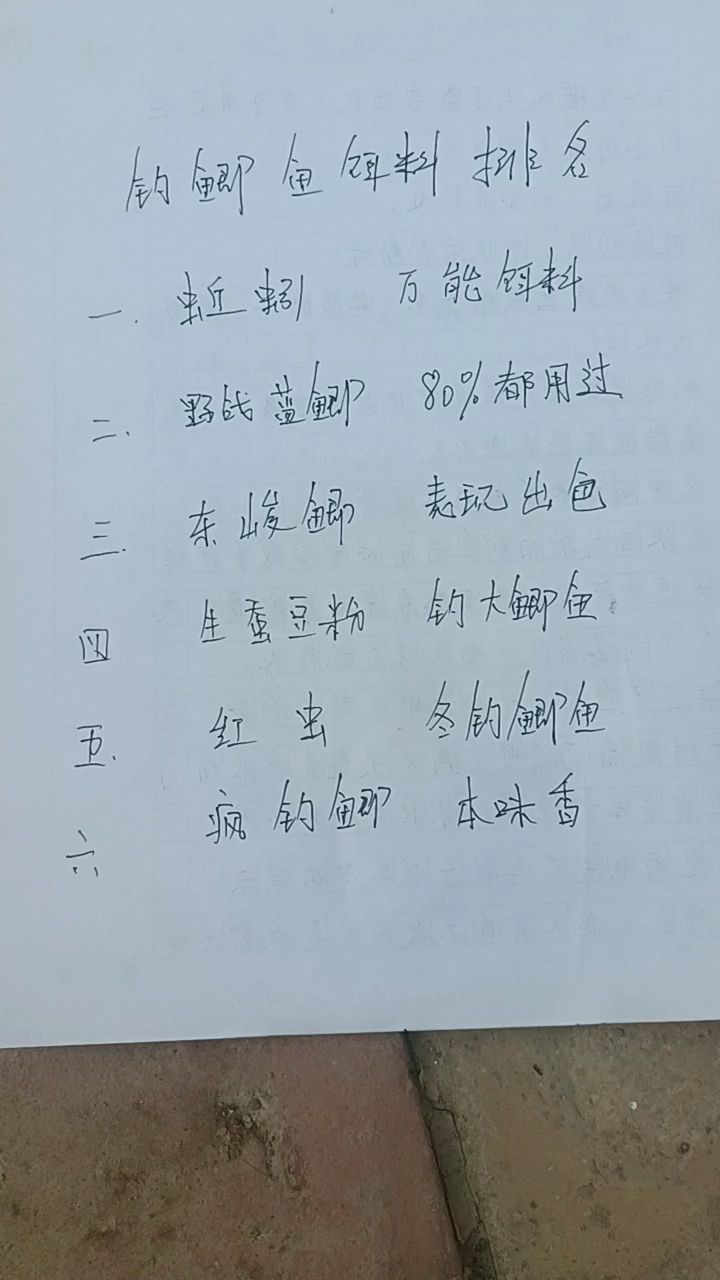 钓鲫鱼饵料排名
一. 蚯蚓 万能饵料
二、野战蓝鲫 80%都用过
三. 东峻鲫 表现出色
四 生蚕豆粉 钓大鲫鱼.
五. 红虫 冬钓鲫鱼
六 疯钓鲫 本味香